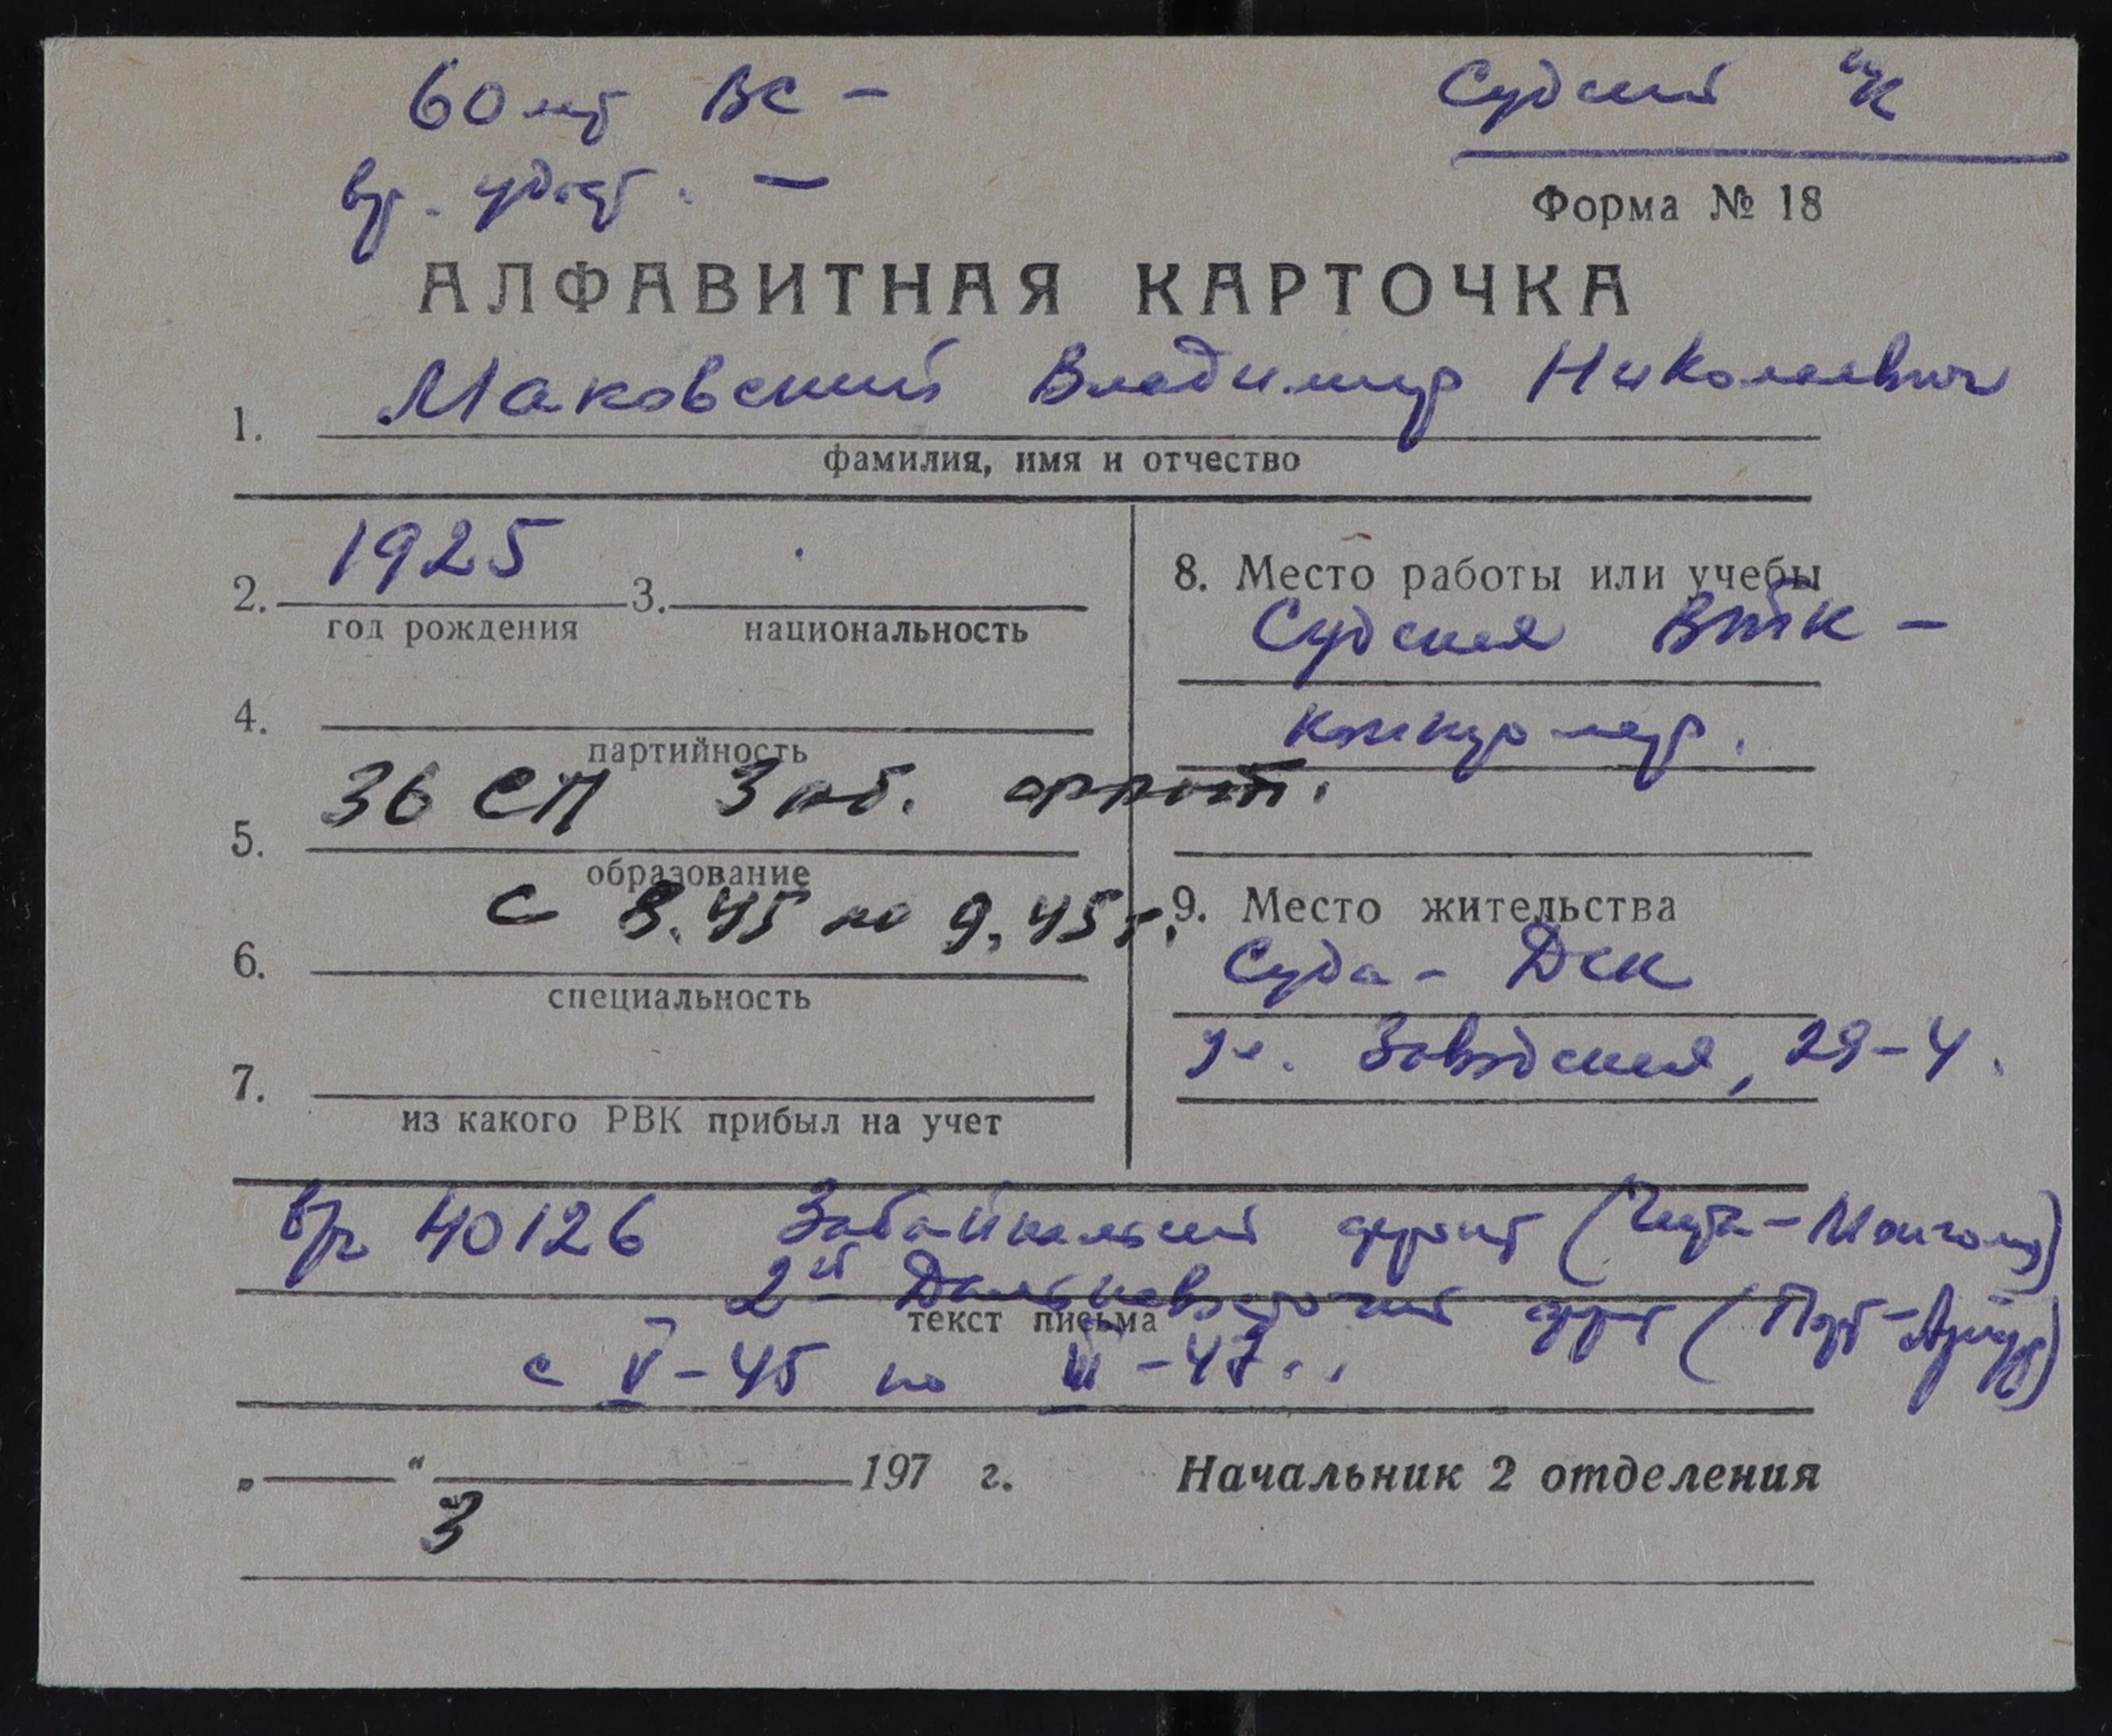 60 лет ВС —
Судский с/с
вр. удост. —
Форма № 18
АЛФАВИТНАЯ КАРТОЧКА
1. Маковский Владимир Николаевич
фамилия, имя и отчество
2. 1925 3.
год рождения национальность
4.
партийность
36 СП Заб. фронт.
5.
образование
с 8.45 по 9.45 г.
6.
специальность
7.
из какого РВК прибыл на учет
8. Место работы или учебы
Судская ВТК —
9. Место жительства
Суда - ДСК
ул. Заводская, 29-4.
в/ч 40126 Забайкальский фронт (Чита-Монголия)
2й Дальневосточный фронт (Порт-Артур)
текст письма
с V-45 по
„ “ 197 г. Начальник 2 отделения
3